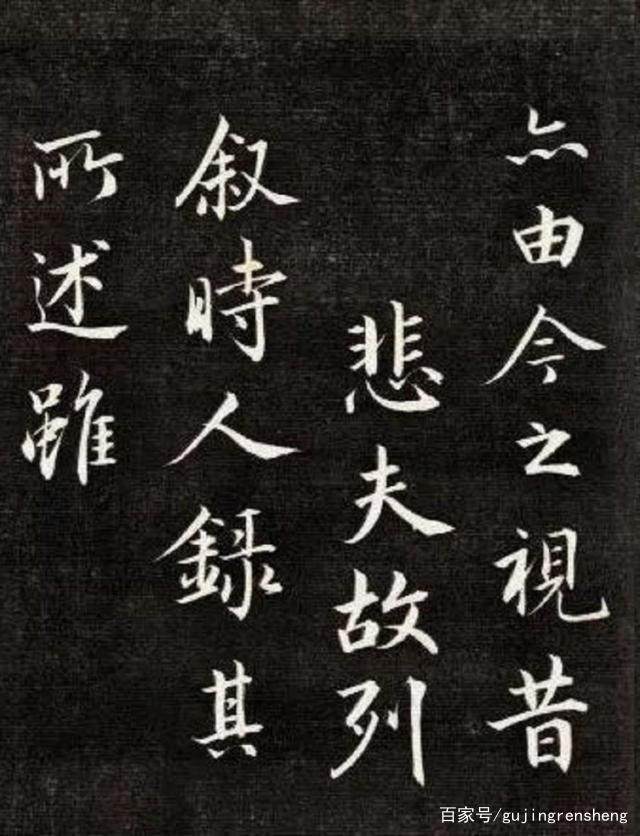 亦由今之視昔
悲夫故列
叙時人録其
所述雖
百家号/gujingrensheng